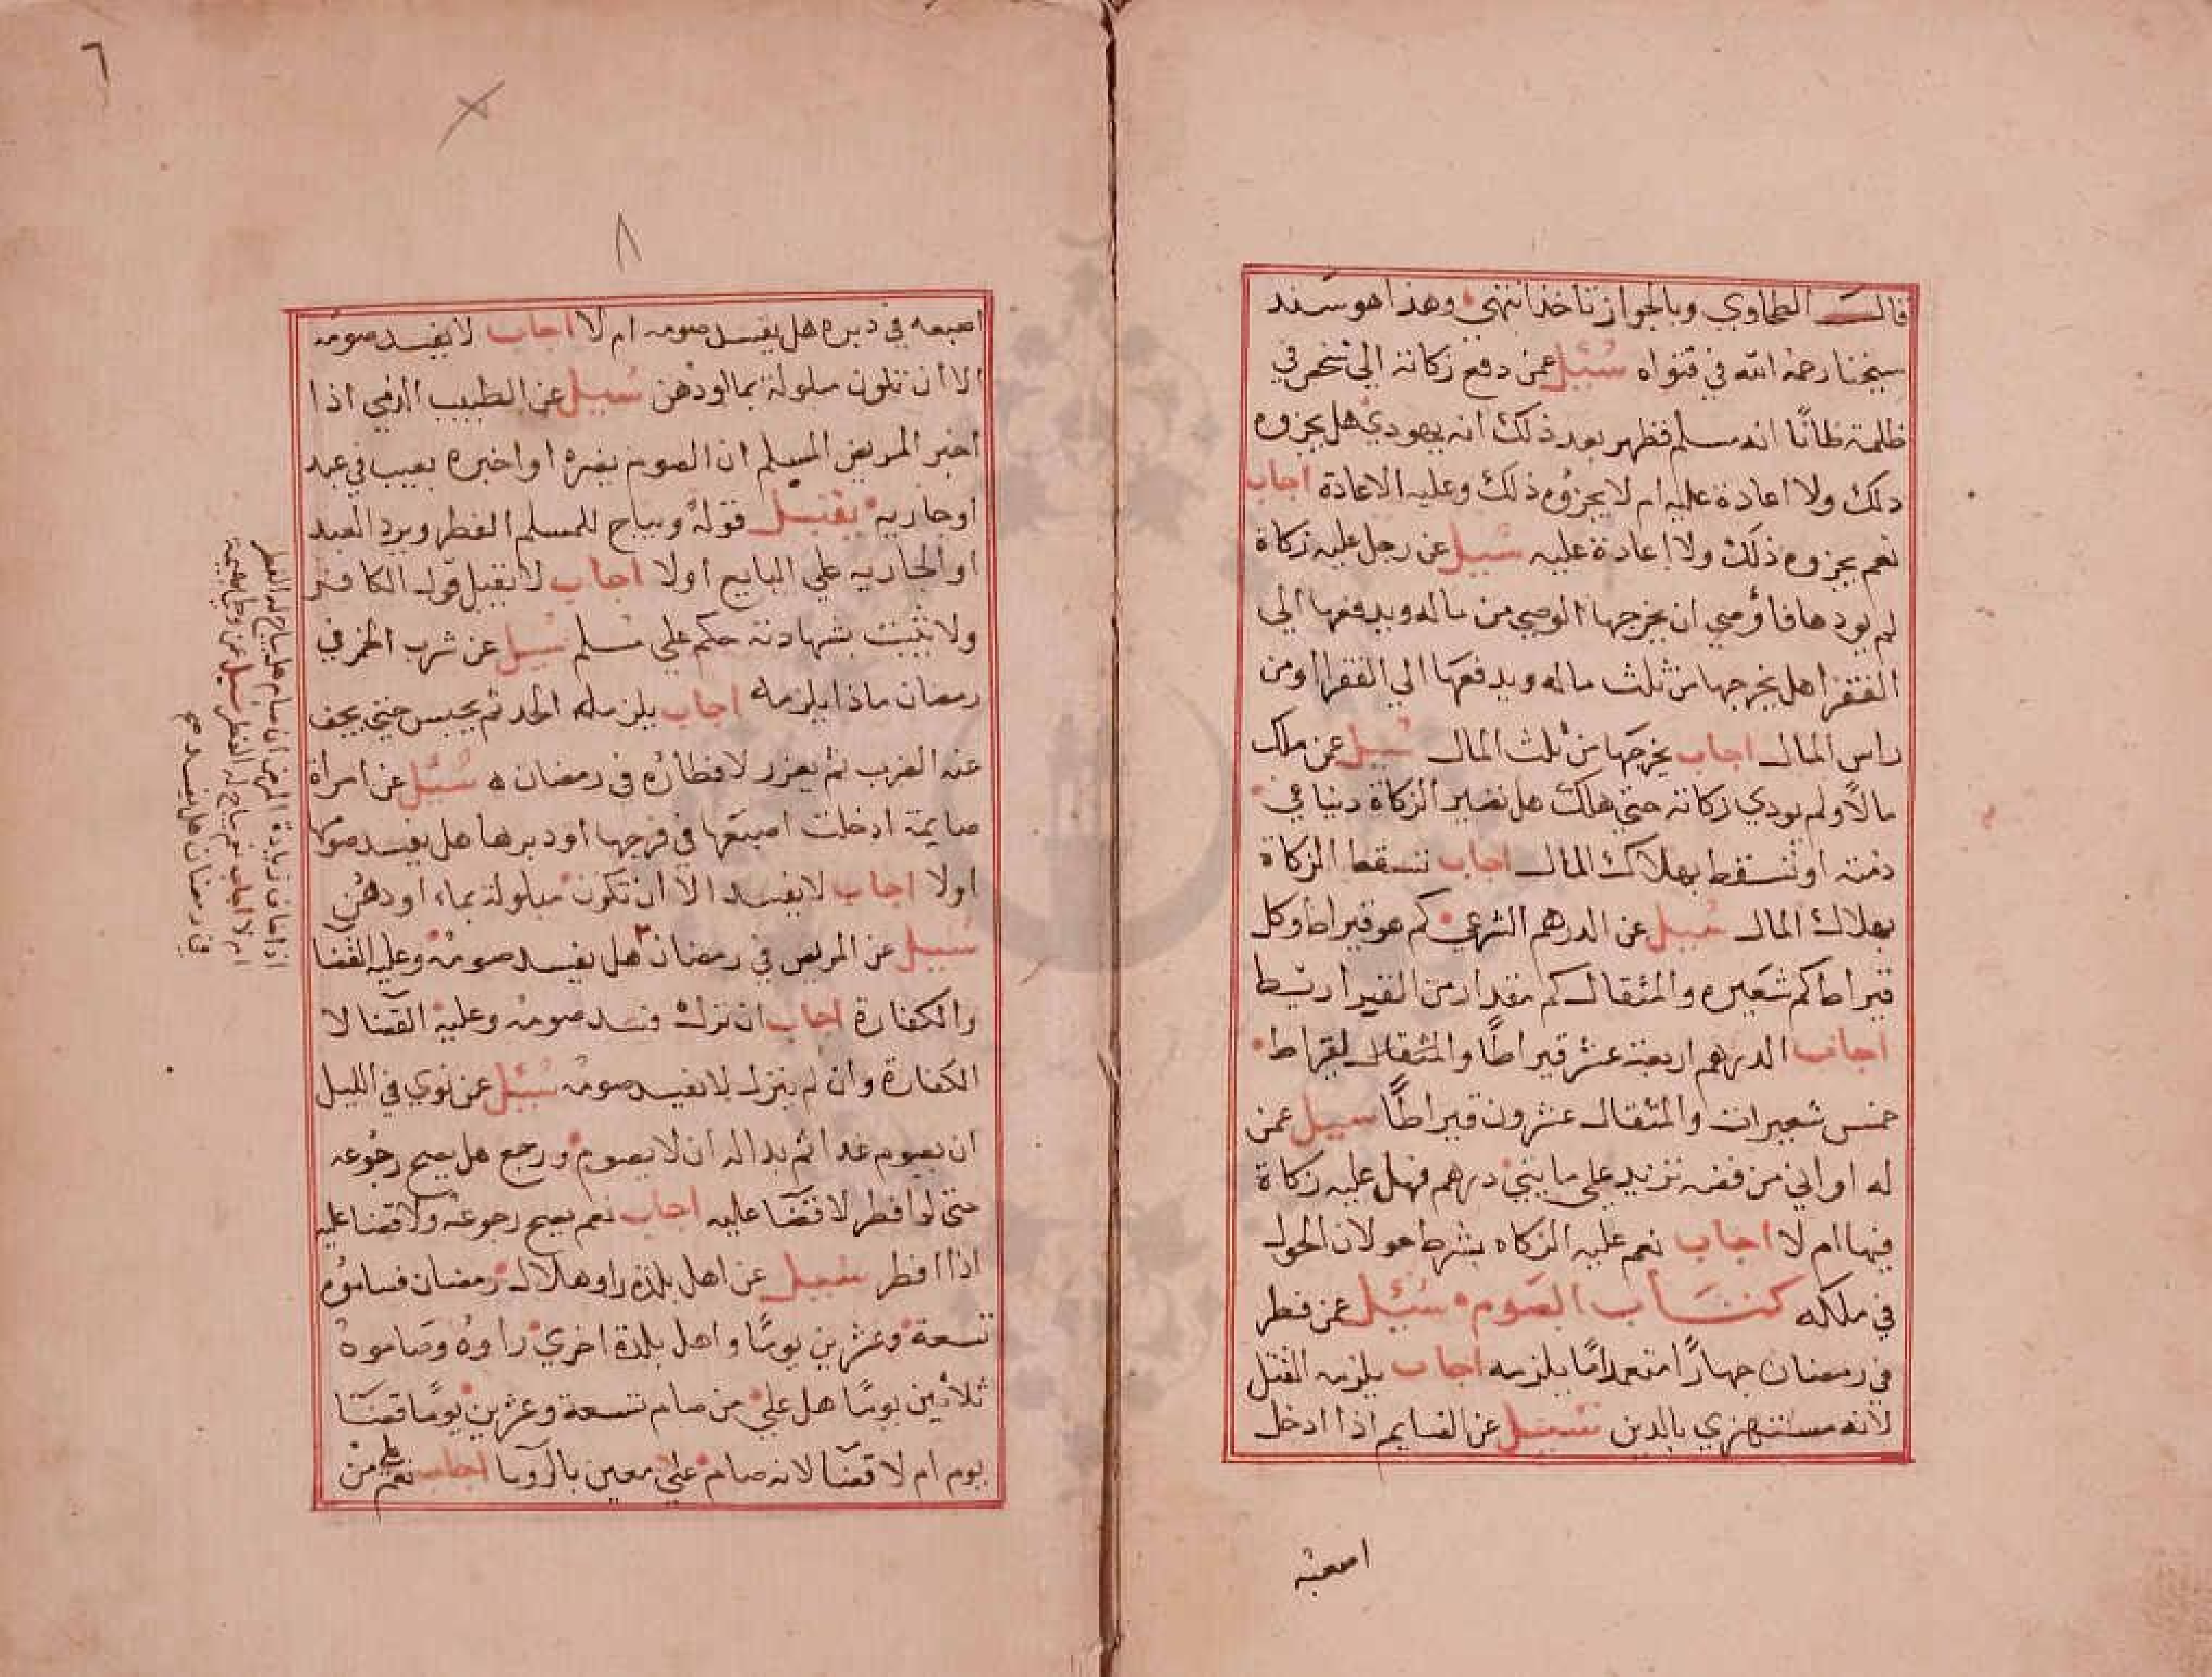 قال الطحاوي وبالجواز ناخذ انتهي وهذا هو سند
شيخنا رحمه الله في فتواه سئيل عمن دفع زكاته الي شخص في
ظلمة ظانًا انه مسلم فظهر بعد ذلك انه يهودي هل يجزوه
ذلك ولا اعادة عليه ام لا يجزوه ذلك وعليه الاعادة اجاب
نعم يجزوه ذلك ولا اعادة عليه سيل عن رجل عليه زكاة
لم يودها فاوصي ان يخرجها الوصي من ماله ويدفعها الي
الفقرا هل يخرجها من ثلث ماله ويدفعها الي الفقرا او من
راس المال اجاب يخرجها من ثلث المال سيل عمن ملك
مالاً ولم يودي زكاته حتي هلك هل تصير الزكاة دينا في
ذمته او تسقط بهلاك المال اجاب تسقط الزكاة
بهلاك المال سيل عن الدرهم الشرعي كم هو قيراطا وكل
قيراطا كم شعيره والمثقال كم مقدار من القيراريط
اجاب الدرهم اربعة عشر قيراطًا والمثقال لقراط
خمس شعيرات والمثقال عشرون قيراطًا سيل عمن
له اواني من فضه تزيد علي مايتي درهم فهل عليه زكاة
فيها ام لا اجاب نعم عليه الزكاه بشرط حولان الحول
في ملكه كتاب الصوم سئيل عمن فطر
في رمضان جهارًا متعمدا ما يلزمه اجاب يلزمه القتل
لانه مستهزي بالدين سئيل عن الصايم اذا ادخل
اصبعه
٦
٨
اصبعه في دبره هل يفسد صومه ام لا اجاب لا يفسد صومه
الا ان تكون مبلولة بما او دهن سيل عن الطبيب الذمي اذا
اخبر المريض المسلم ان الصوم يضره او اخبره بعيب في عبد
او جاريه يقبل قوله ويباح للمسلم الفطر ويرد العبد
او الجاريه علي البايع اولا اجاب لا يقبل قول الكافر
ولا تثبت بشهادته حكم علي مسلم سيل عن شرب الخمر في
رمضان ماذا يلزمه اجاب يلزمه الحد ثم يحبس حتي يجف
عنه الضرب ثم يعزر لافطاره في رمضان ه سئيل عن امراة
صايمة ادخلت اصبعها في فرجها او دبرها هل يفسد صومها
اولا اجاب لا يفسد الا ان تكون مبلولة بماء او دهن
سيل عن المريض في رمضان هل يفسد صومه وعليه القضا
والكفارة اجاب ان نزل فسد صومه وعليه القضا لا
الكفارة وان لم ينزل لا يفسد صومه سئيل عمن نوي في الليل
ان يصوم غدا ثم بدا له ان لا يصوم ورجع هل يصح رجوعه
حتي لو افطر لا قضا عليه اجاب نعم يصح رجوعه ولا قضا عليه
اذا افطر سئيل عن اهل بلدة راو هلال رمضان فصاموه
تسعة وعشرين يومًا واهل بلدة اخري راوه وصاموه
ثلاثين يومًا هل علي من صام تسعة وعشرين يومًا قضا
يوم ام لا قضا لانه صام علي معين بالرويا اجاب نعم علي من
اذا خاف زيادة المرض ان صام هل يباح له الفطر
ام لا اجاب نعم يباح له الفطر سيل عن
في رمضان هل يفسد